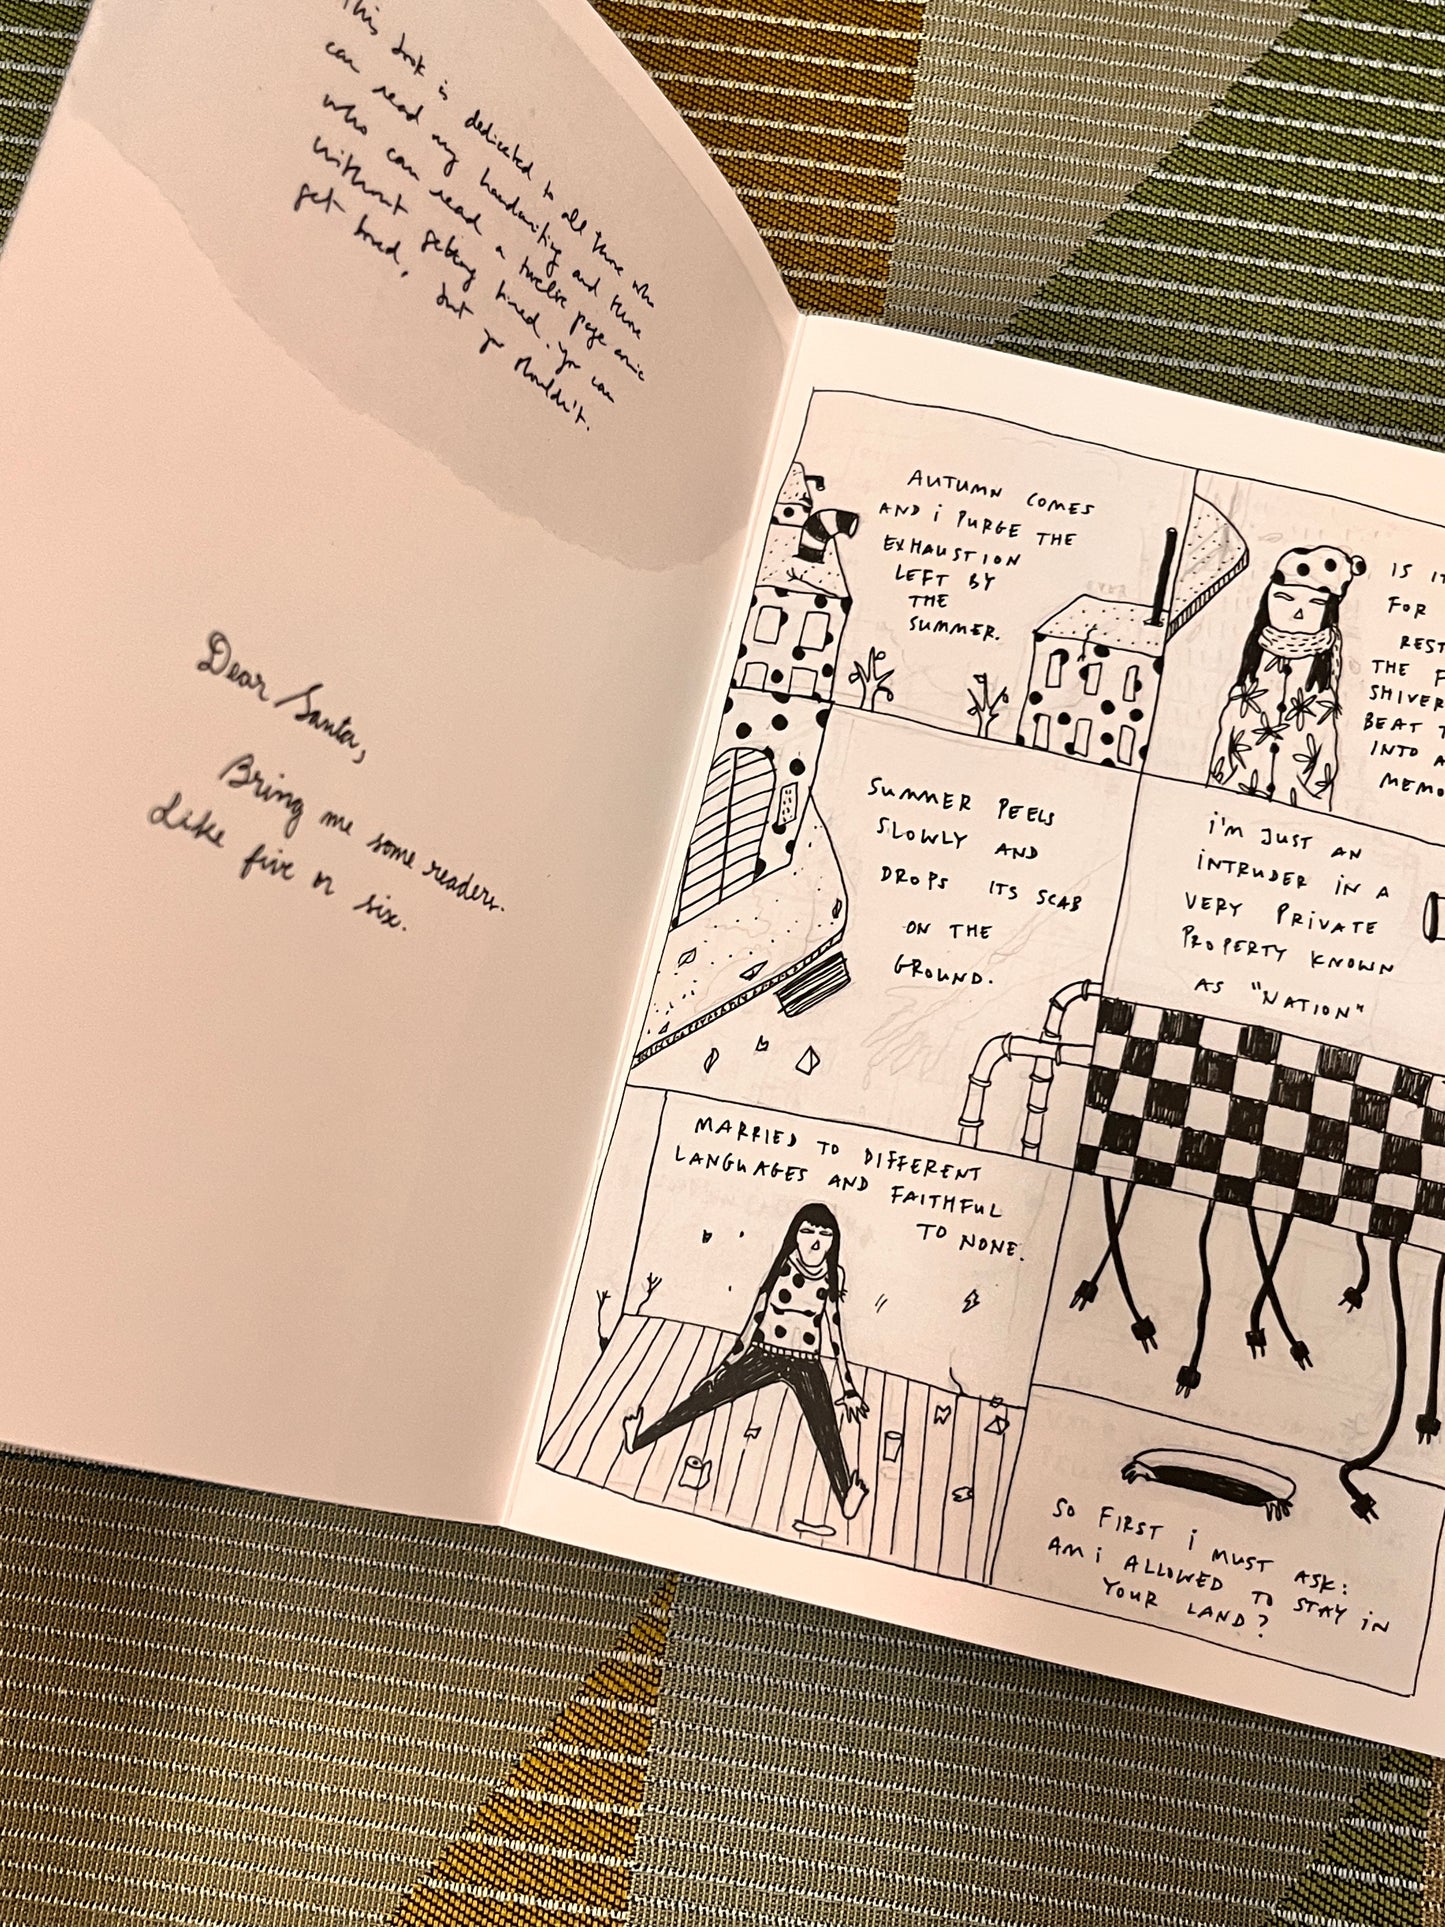 This book is dedicated to all those who
can read my handwriting and those
who can read a twelve page comic
without getting tired. You can
get bored, but you shouldn't.
Dear Santa,
Bring me some readers.
Like five or six.
AUTUMN COMES
AND i PURGE THE
EXHAUSTION
LEFT BY
THE
SUMMER.
IS
FOR
REST
THE
SHIVER
BEAT
INTO
MEMO
SUMMER PEELS
SLOWLY AND
DROPS ITS SCAB
ON THE
GROUND.
i'M JUST AN
INTRUDER iN A
VERY PRiVATE
PROPERTY KNOWN
AS "NATION"
MARRIED TO DIFFERENT
LANGUAGES AND FAITHFUL
TO NONE.
SO FIRST i MUST ASK:
AM i ALLOWED TO STAY iN
YOUR LAND?